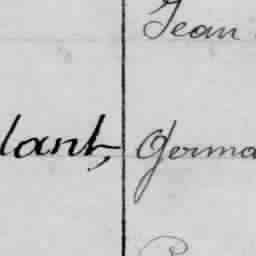 Jean
lant, Germa